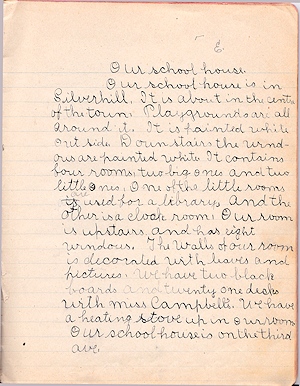 E.
Our school house.
Our school house is in
Silverhill. It is about in the centre
of the town. Playgrounds are all
around it. It is painted white
out side. Down stairs the wind-
ous are painted white It contains
four rooms, two big ones and two
little ones, One of the little rooms
is used for a library, And the
other is a cloack room. Our room
is upstairs and has eight
windous. The walls of our room
is decorated with leaves and
pictures. We have two black
boards and twenty one desks
with miss Campbells. We have
a heating stove up in our room
Our school house is on the third
ave.